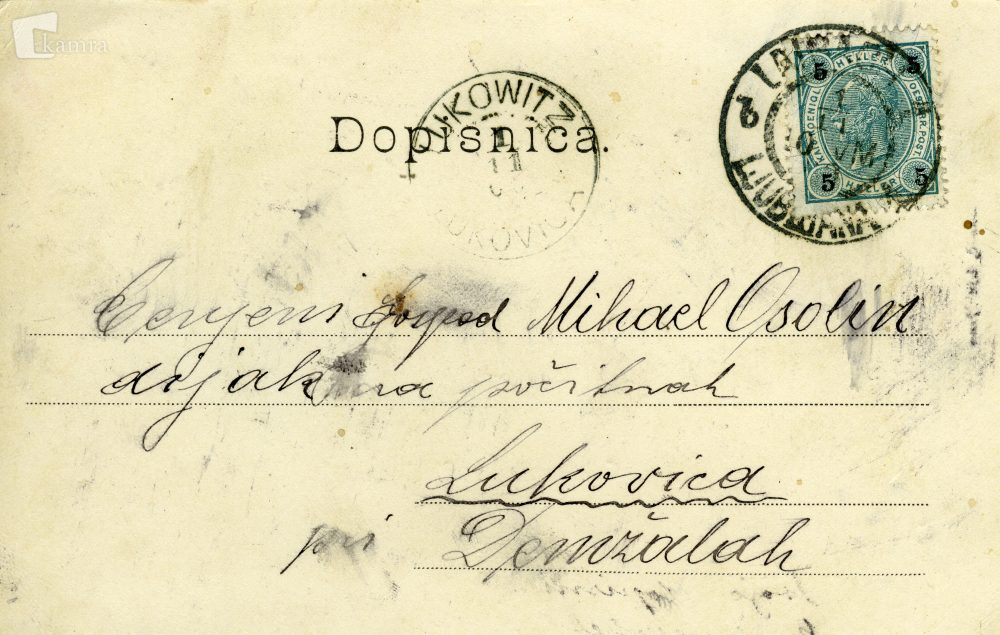 kamra
LUKOWITZ
11
LUKOVICA
Dopisnica.
LAIBACH
LJUBLJANA
5 HELLER 5
KAIS. KOENIGL. OESTERR. POST.
5 HELLER 5
Cenjeni gospod Mihael Osolin
dijak na počitnah
Lukovica
pri Demžalah